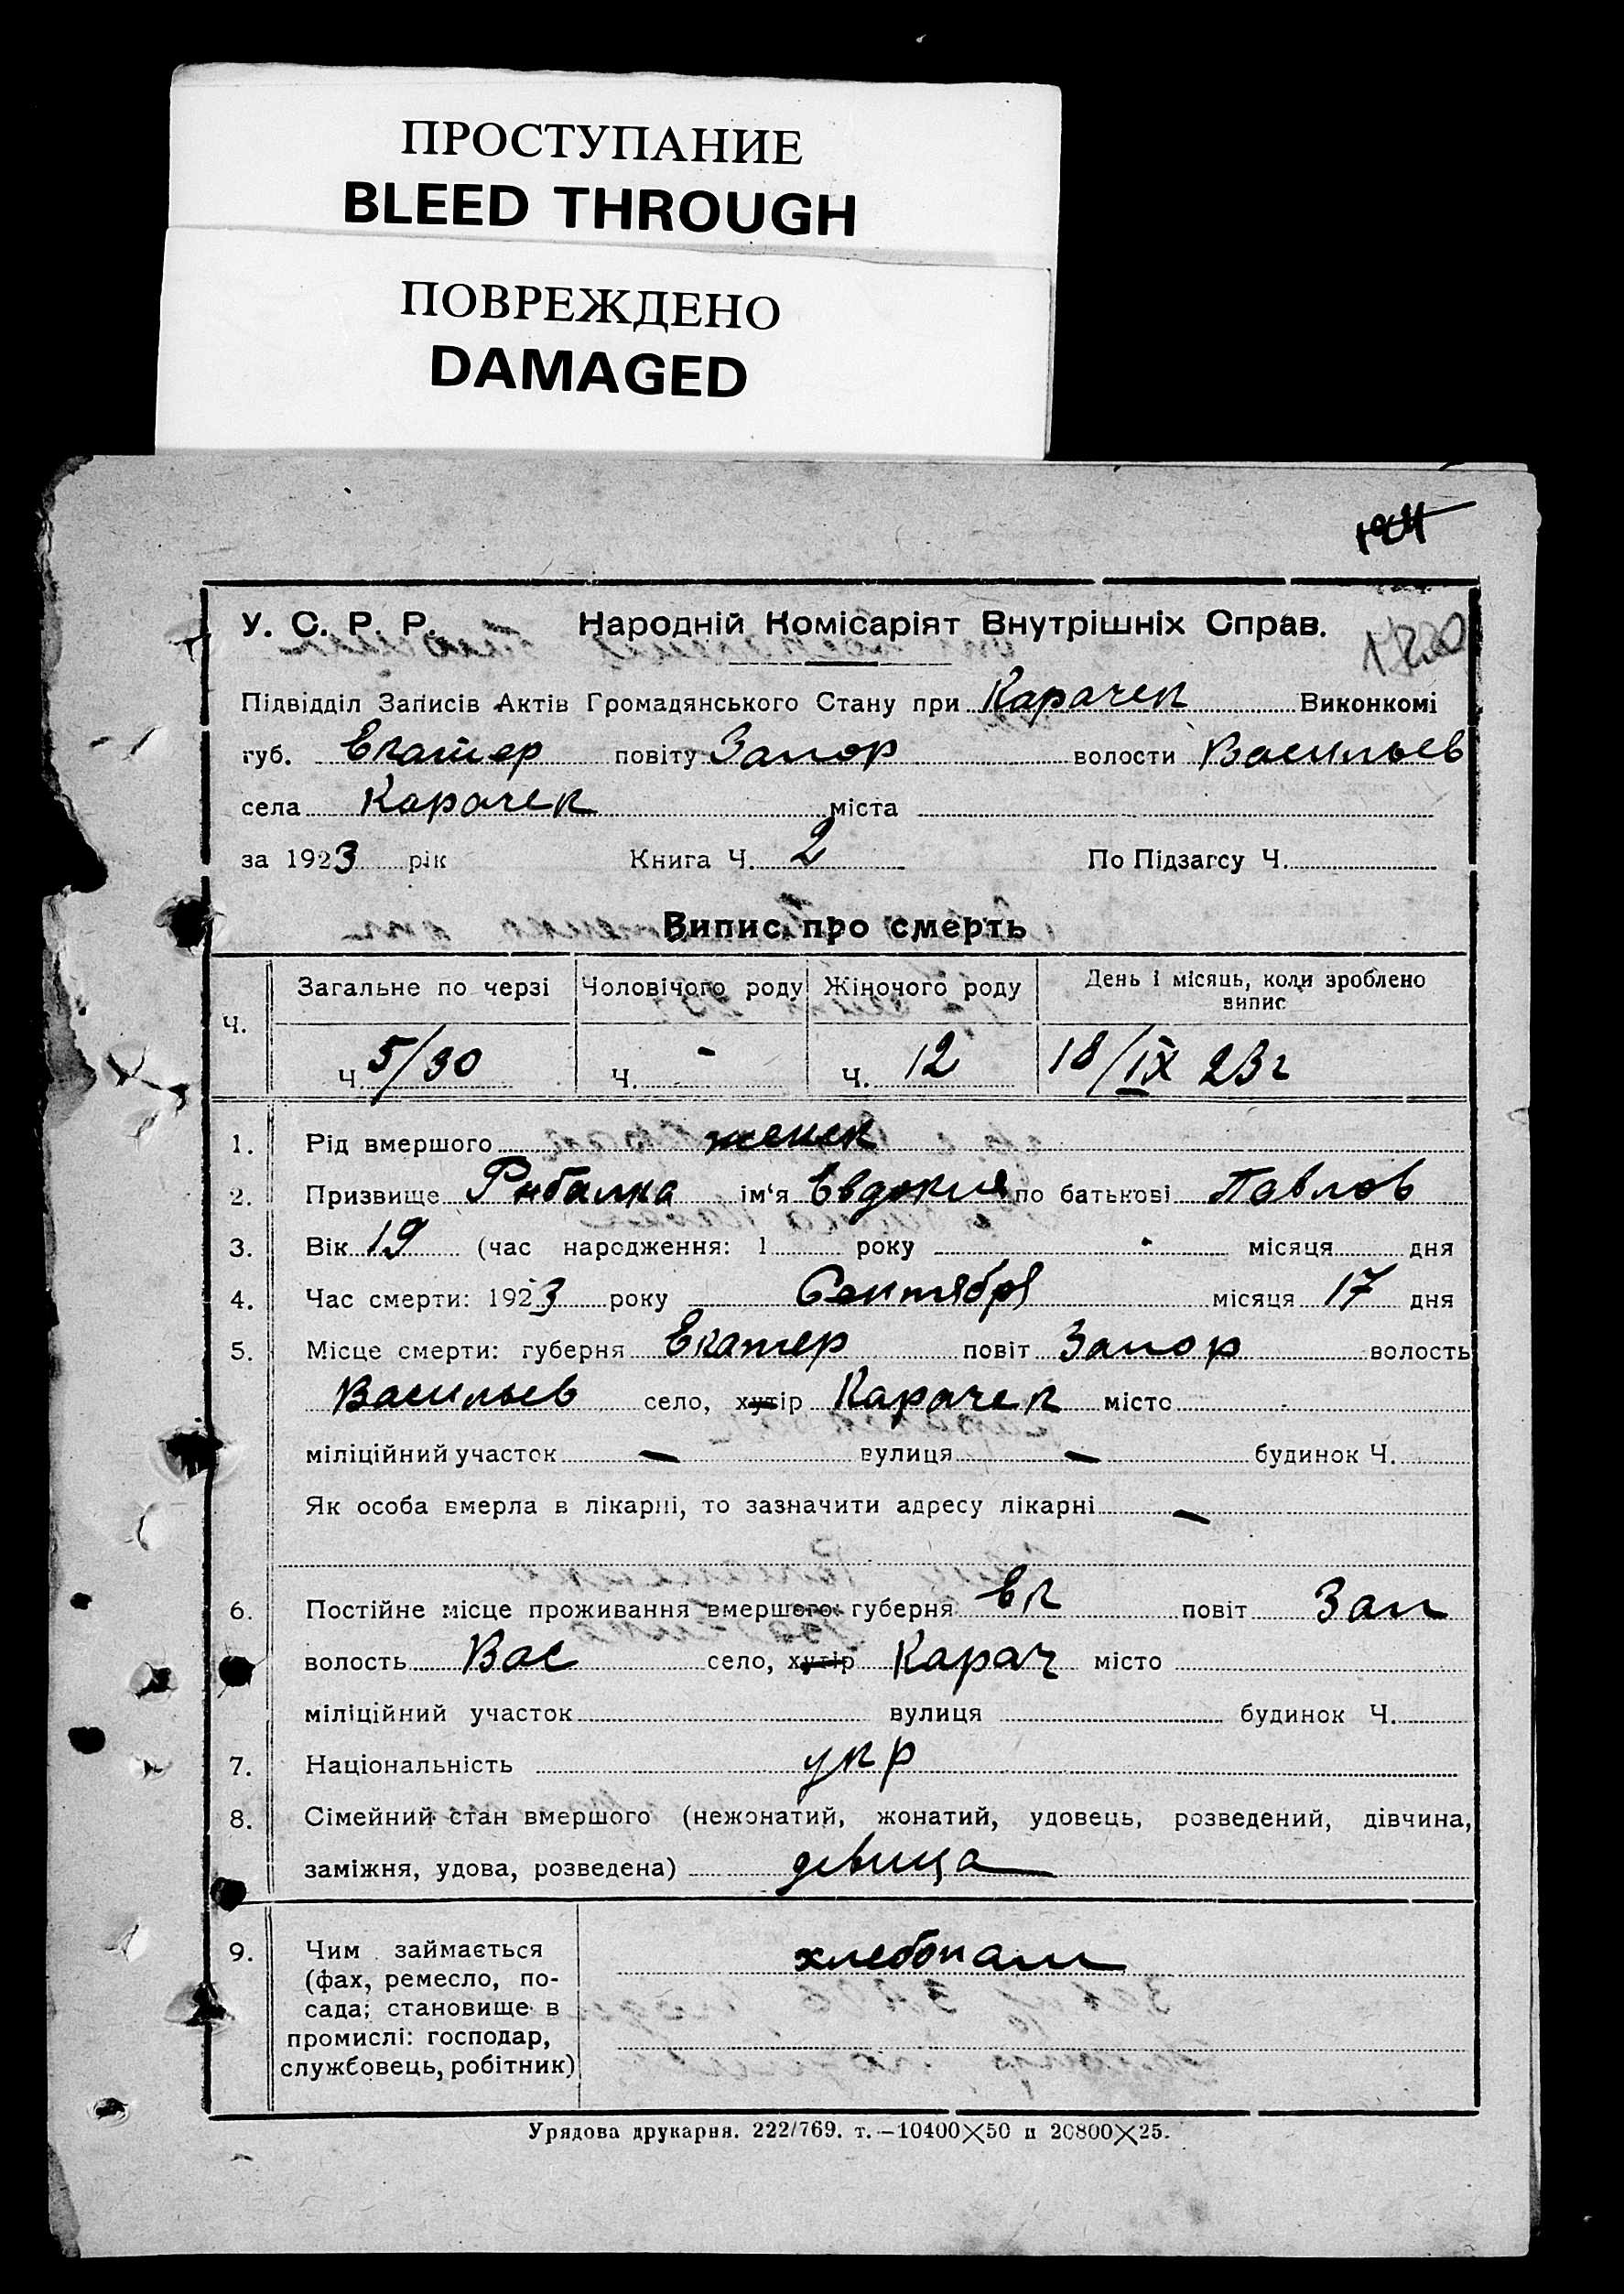 ПРОСТУПАНИЕ
BLEED THROUGH
ПОВРЕЖДЕНО
DAMAGED
У. С. Р. Р. Народній Комісаріят Внутрішніх Справ.
Підвідділ Записів Актів Громадянського Стану при Карачек Виконкомі
губ. Екатер повіту Запор волости Васильев
села Карачек міста
за 1923 рік Книга Ч. 2 По Підзагсу Ч.
Випис про смерть
Ч. Загальне по черзі Чоловічого роду Жіночого роду День і місяць, коли зроблено
випис
Ч. 5/30 Ч. - Ч. 12 18/IX 23 г
1. Рід вмершого женск
2. Призвище Рибалка ім'я Евдокия по батькові Павлов
3. Вік 19 (час народження: 1 року місяця дня
4. Час смерти: 1923 року Сентября місяця 17 дня
5. Місце смерти: губерня Екатер повіт Запор волость
Васильев село, хутір Карачек місто
міліційний участок — вулиця — будинок Ч.
Як особа вмерла в лікарні, то зазначити адресу лікарні —
6. Постійне місце проживання вмершого: губерня Ек повіт Зап
волость Вас село, хутір Карач місто
міліційний участок вулиця будинок Ч.
7. Національність укр
8. Сімейний стан вмершого (нежонатий, жонатий, удовець, розведений, дівчина,
заміжня, удова, розведена) девица
9. Чим займається хлебопаш
(фах, ремесло, по-
сада; становище в
промислі: господар,
службовець, робітник)
Урядова друкарня. 222/769. т.—10400×50 п 20800×25.